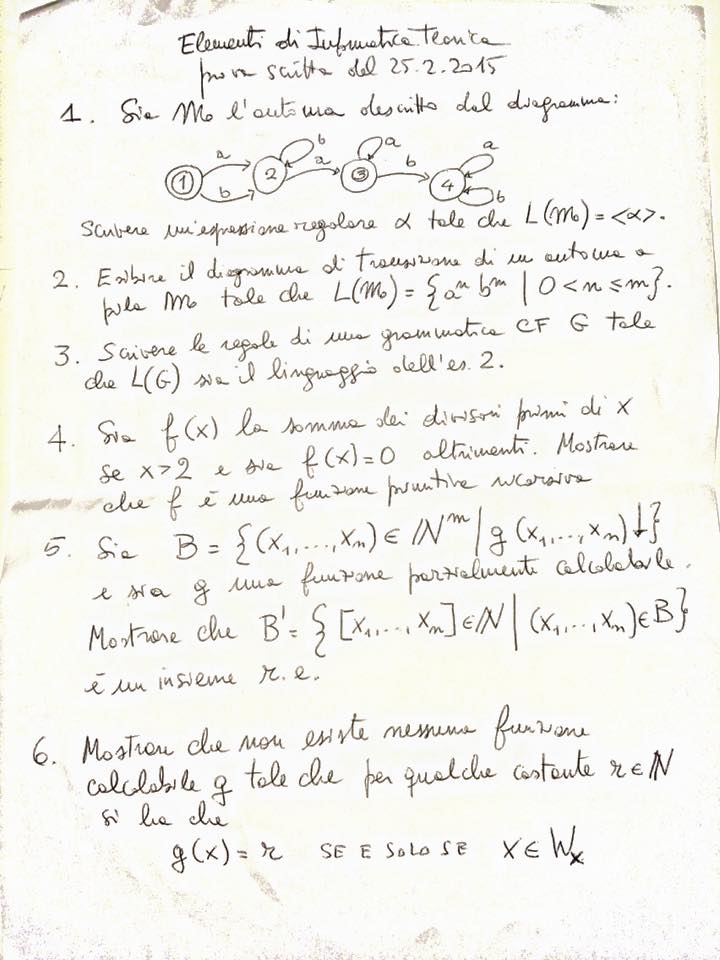 Elementi di Informatica Teorica
prova scritta del 25.2.2015
1. Sia M₀ l'automa descritto dal diagramma:
a b a a b a
1 2 3 4
b b
Scrivere un'espressione regolare α tale che L(M₀) = <α>.
2. Esibire il diagramma di transizione di un automa a
pila M₀ tale che L(M₀) = {aⁿ bᵐ | 0 < n ≤ m}.
3. Scrivere le regole di una grammatica CF G tale
che L(G) sia il linguaggio dell'es. 2.
4. Sia f(x) la somma dei divisori primi di x
se x > 2 e sia f(x) = 0 altrimenti. Mostrare
che f è una funzione primitiva ricorsiva
5. Sia B = {(x₁, ..., xₙ) ∈ ℕᵐ | g(x₁, ..., xₙ)↓}
e sia g una funzione parzialmente calcolabile.
Mostrare che B' = {[x₁, ..., xₙ] ∈ ℕ | (x₁, ..., xₙ) ∈ B}
è un insieme r.e.
6. Mostrare che non esiste nessuna funzione
calcolabile g tale che per qualche costante r ∈ ℕ
si ha che
g(x) = r SE E SOLO SE x ∈ Wₓ